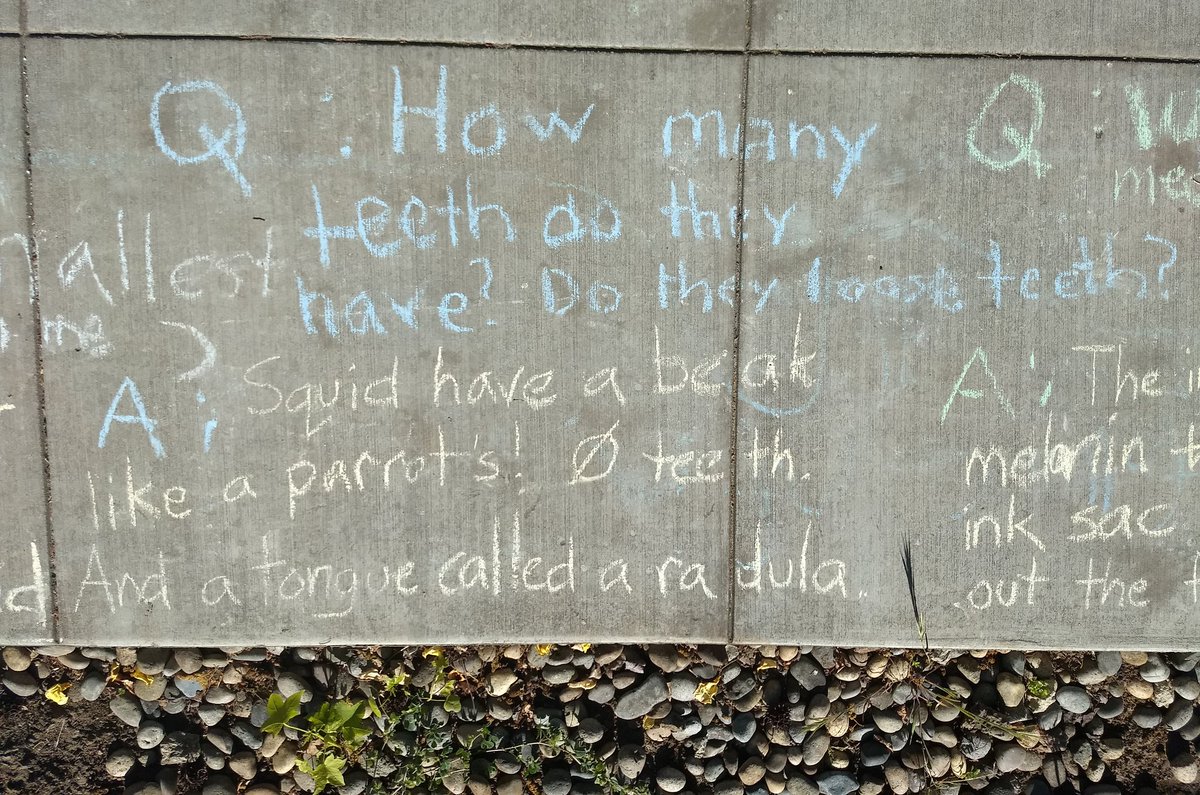 allest
?
Q : How many
teeth do they
have? Do they loose teeth?
A : Squid have a beak
like a parrot's! Ø teeth.
And a tongue called a radula.
Q :
A : The
melanin
ink sac
out the